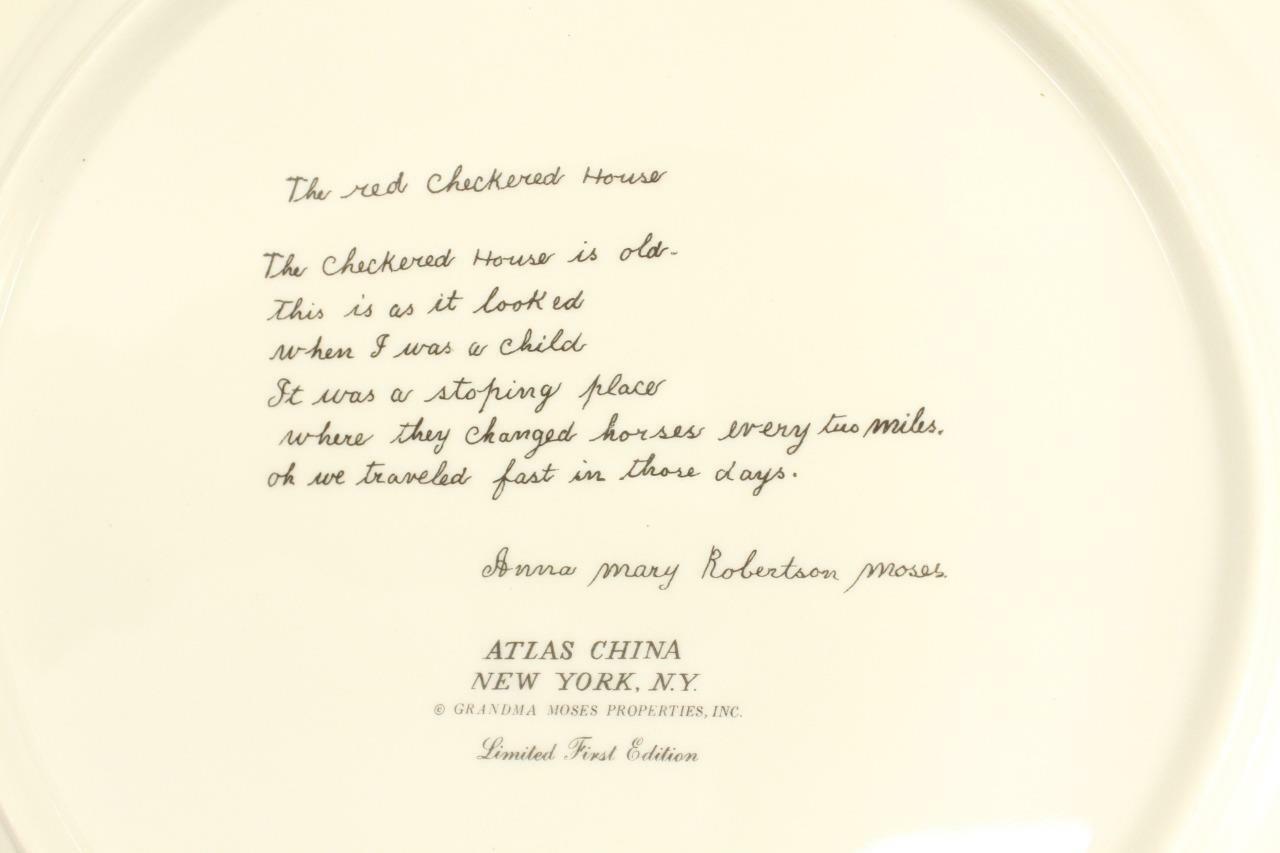 The red Checkered House
The Checkered House is old-
This is as it looked
when I was a child
It was a stoping place
where they changed horses every two miles.
oh we traveled fast in those days.
Anna mary Robertson moses.
ATLAS CHINA
NEW YORK, N.Y.
© GRANDMA MOSES PROPERTIES, INC.
Limited First Edition